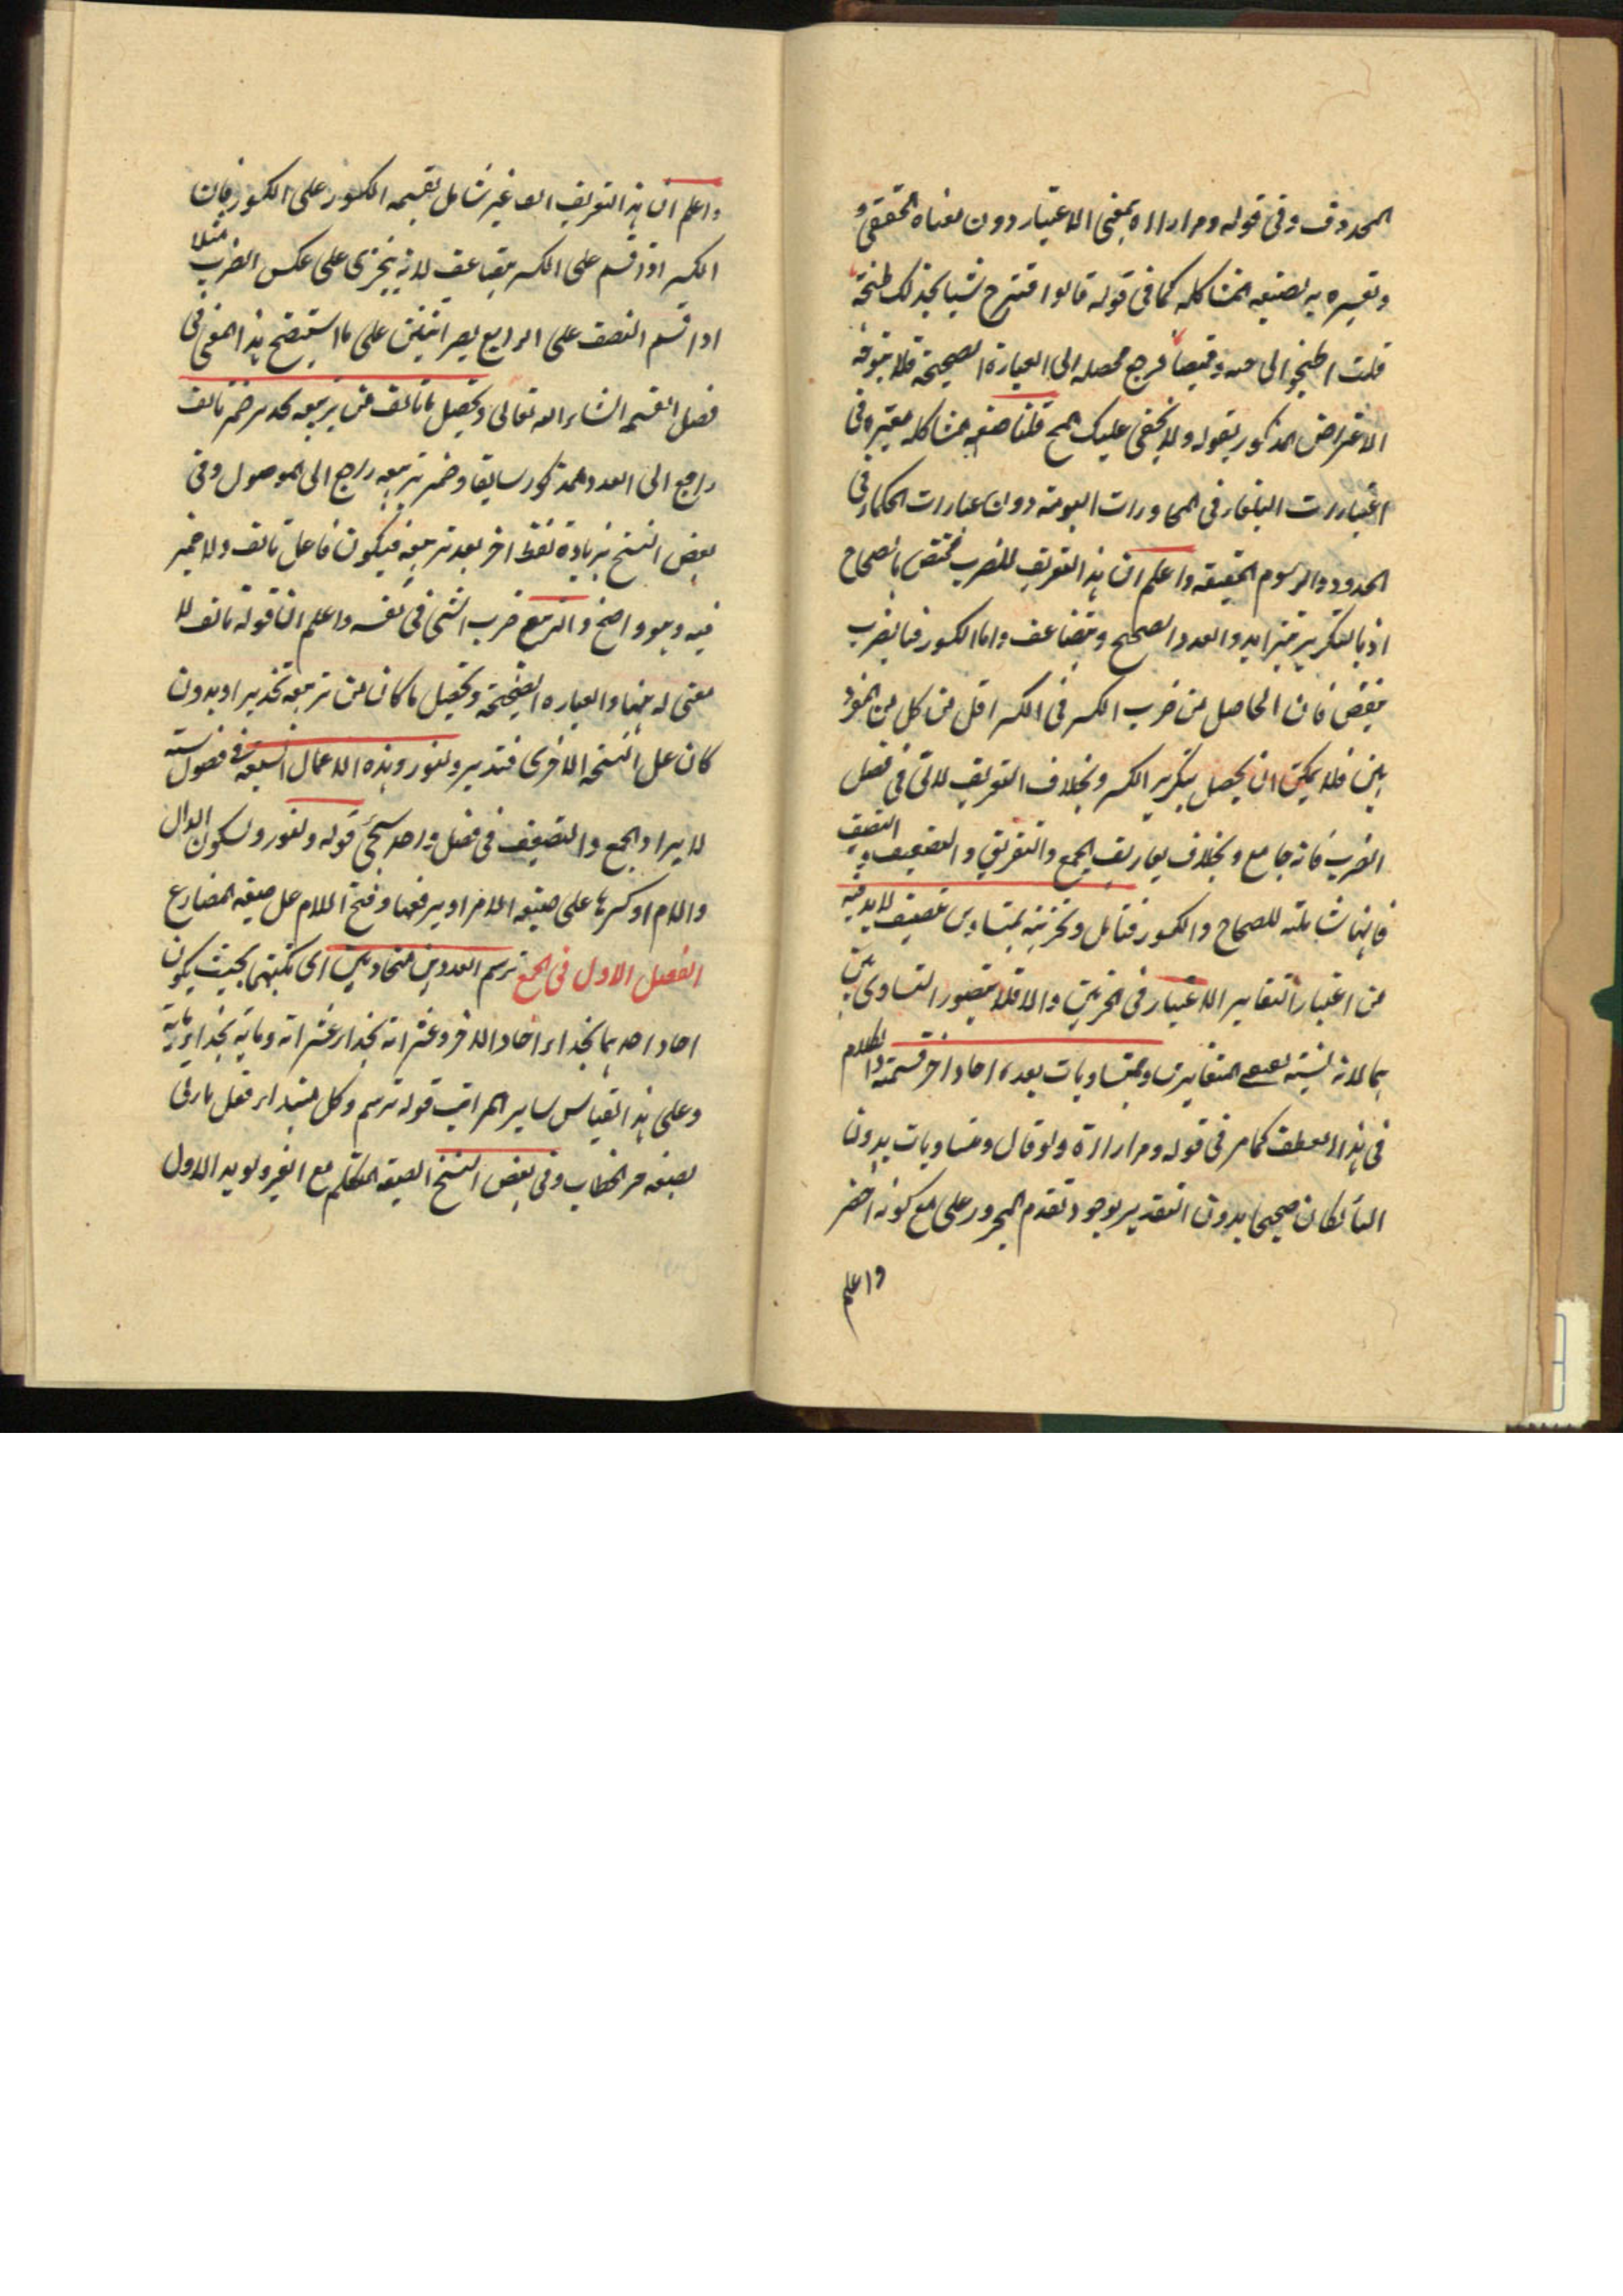 المحذوف وفى قوله ومرارااه بمعنى الاعتبار دون معناه الحقيقى و
وتعبيره به لصنيعه المشاكله كما فى قوله قالوا اقترح شيا نجد لك طبخه
قلت اطبخوا لى جبه وقميصا فرجع محصله الى العبارة الصحيحة فلا يتوجه
الاعتراض المذكور بقوله ولا يخفى عليك الخ قلنا صنعه المشاكله معتبره فى
اعتبارات البلغاء فى المحاورات اليوميه دون عبارات الحكماء فى
الحدود والرسوم الحقيقيه واعلم ان هذا التعريف للضرب مختص بالصحاح
اذ بالتكرير يتزايد العدد الصحيح ويتضاعف واما الكسور فبالضرب
ينقص فان الحاصل من ضرب الكسر فى الكسر اقل من كل من المضرو
بين فلا يمكن ان يحصل بتكرير الكسر وبخلاف التعريف الاتى فى فصل
الضرب فانه جامع وبخلاف تعاريف الجمع والتفريق والتضعيف والتنصيف
فانها شاملة للصحاح والكسور فتأمل وتجزيته بمتساويين تنصيف لا بد فيه
من اعتبار التغاير الاعتبارى فى الجزئين والا فلا يتصور التساوى بين
هما لانه نسبة تقتضى المتغايرين وبمتساويات بعدة احاد اخر قسمته والكلام
فى هذا العطف كما مر فى قوله ومرارااة ولو قال ومتساويات بدون
الباء لكان صحيحا بدون التقدير لوجود تقدم المجرور على مع كونه اخصر
واعلم
واعلم ان هذا التعريف ايضا غير شامل لقسمه الكسور على الكسور فان
الكسر اذا قسم على الكسر يتضاعف لانه يتجزى على عكس الضرب مثلا
اذا قسم النصف على الربع يصير اثنين على ما استتضح هذا المعنى فى
فصل القسمه انشاء الله تعالى وتحصيل ما تالف من تربيعه جذر ضمير تالف
راجع الى العدد المذكور سابقا وضمير تربيعه راجع الى الموصول وفى
بعض النسخ بزيادة لفظ اخر بعد تربيعه فيكون فاعل تالف ولا ضمير
فيه وهو واضح والتربيع ضرب الشى فى نفسه واعلم ان قوله تالف لا
معنى له هنا والعباره الصحيحة وتحصيل ما كان من تربيعه تجذير او بدون
كان على النسخه الاخرى فتدبر ولنورد هذه الاعمال السبعه فى فصول سته
لايراد الجمع والتضعيف فى فصل واحد سيجئ قوله ولنورد بسكون الدال
واللام او كسرها على صيغه الامر او برفعها وفتح اللام على صيغه المضارع
الفصل الاول فى الجمع ترسم العددين متحاذيين اى تكتبهما بحيث يكون
احاد احدهما بحذاء احاد الاخر وعشراته بحذاء عشراته ومأته بحذاء مأته
وعلى هذا القياس ساير المراتب قوله ترسم وكل مبتداء فعل يأتى
بصيغه مر الخطاب وفى بعض النسخ الصيغه المتكلم مع الغير ويويد الاول